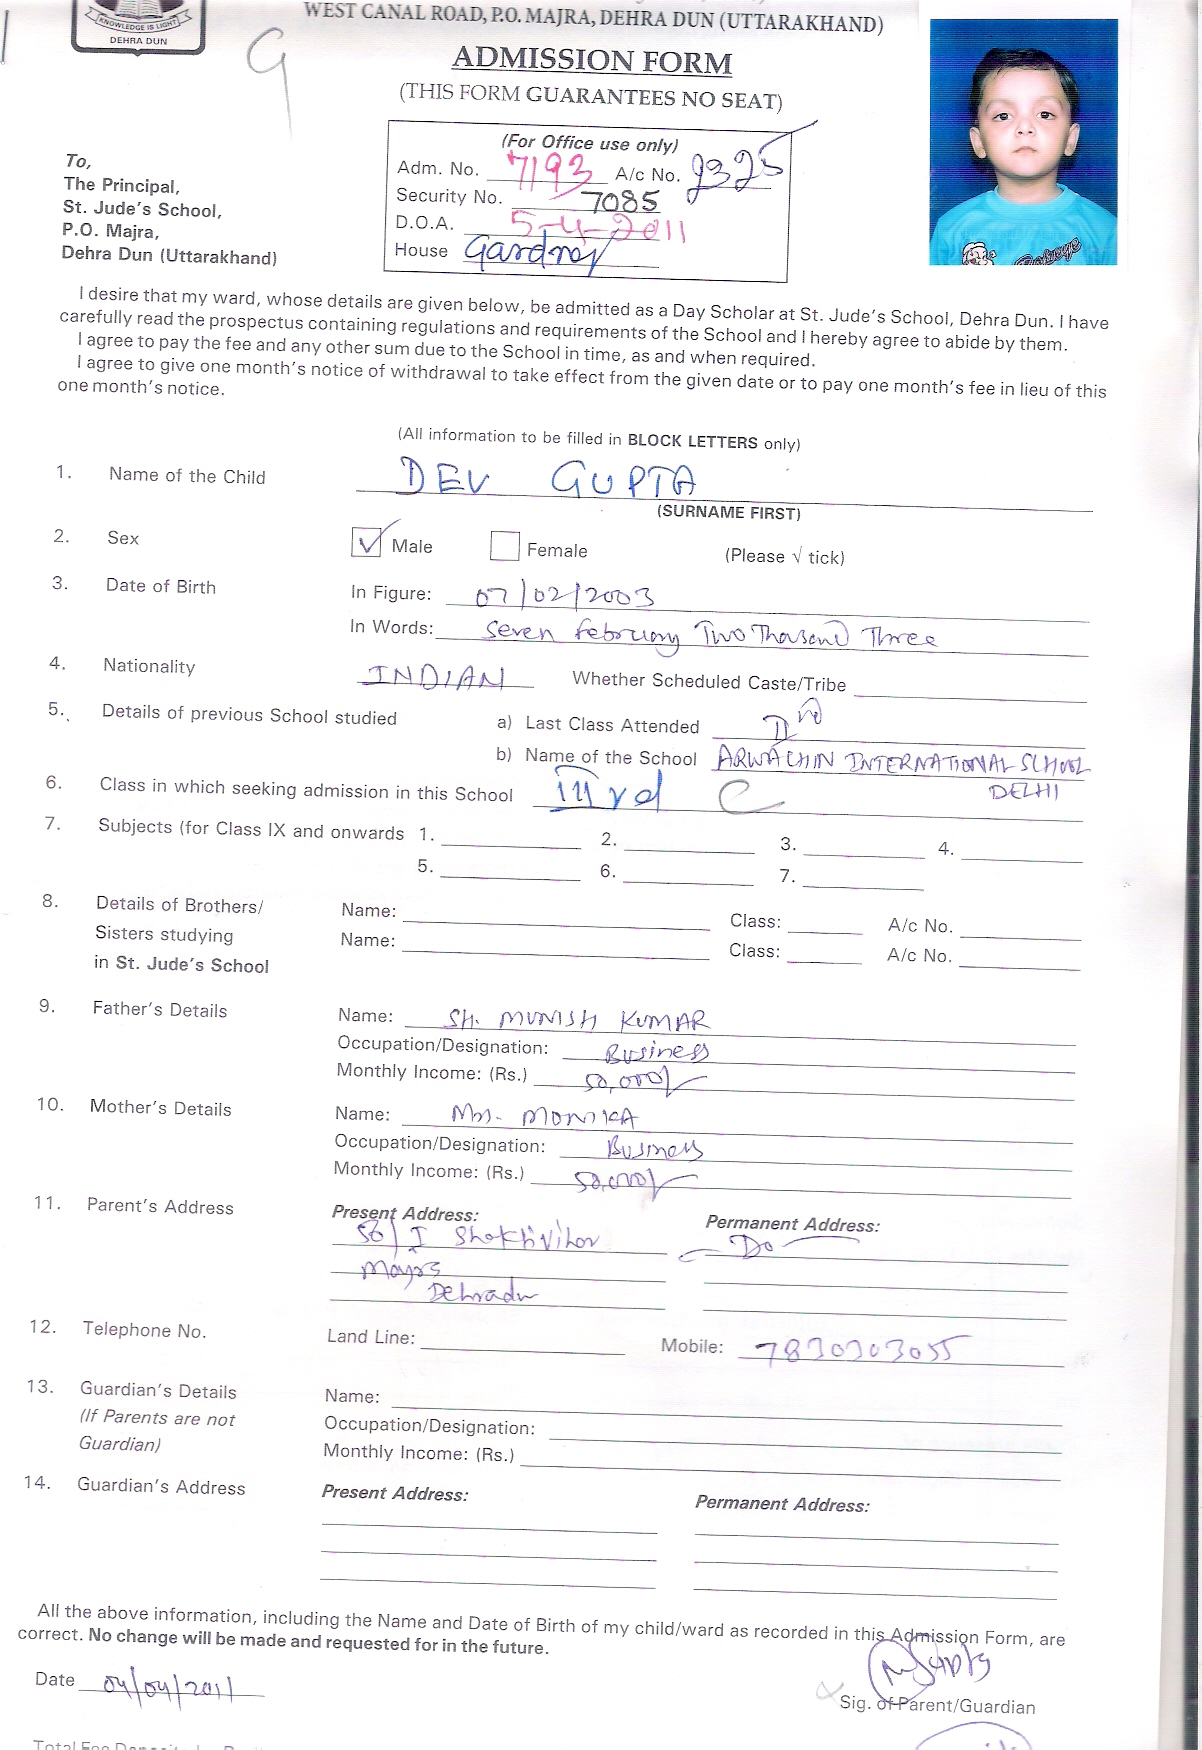 KNOWLEDGE IS LIGHT
DEHRA DUN
WEST CANAL ROAD, P.O. MAJRA, DEHRA DUN (UTTARAKHAND)
9
ADMISSION FORM
(THIS FORM GUARANTEES NO SEAT)
(For Office use only)
Adm. No. 7193 A/c No. 9325
Security No. 7085
D.O.A. 5-4-2011
House Gardney
To,
The Principal,
St. Jude's School,
P.O. Majra,
Dehra Dun (Uttarakhand)
I desire that my ward, whose details are given below, be admitted as a Day Scholar at St. Jude's School, Dehra Dun. I have
carefully read the prospectus containing regulations and requirements of the School and I hereby agree to abide by them.
I agree to pay the fee and any other sum due to the School in time, as and when required.
I agree to give one month's notice of withdrawal to take effect from the given date or to pay one month's fee in lieu of this
one month's notice.
(All information to be filled in BLOCK LETTERS only)
1. Name of the Child DEV GUPTA
(SURNAME FIRST)
2. Sex Male Female (Please √ tick)
3. Date of Birth In Figure: 07/02/2003
In Words: Seven February Two Thousand Three
4. Nationality INDIAN Whether Scheduled Caste/Tribe
5. Details of previous School studied a) Last Class Attended II nd
b) Name of the School ARWACHIN INTERNATIONAL SCHOOL
DELHI
6. Class in which seeking admission in this School IIIrd C
7. Subjects (for Class IX and onwards 1. 2. 3. 4.
5. 6. 7.
8. Details of Brothers/ Name: Class: A/c No.
Sisters studying Name: Class: A/c No.
in St. Jude's School
9. Father's Details Name: SH. MUNISH KUMAR
Occupation/Designation: Business
Monthly Income: (Rs.) 50,000/-
10. Mother's Details Name: Mrs. MONIKA
Occupation/Designation: Business
Monthly Income: (Rs.) 50,000/-
11. Parent's Address Present Address: Permanent Address:
56/I Shakti Vihar Do
Majra
Dehradun
12. Telephone No. Land Line: Mobile: 7830303055
13. Guardian's Details Name:
(If Parents are not Occupation/Designation:
Guardian) Monthly Income: (Rs.)
14. Guardian's Address Present Address: Permanent Address:
All the above information, including the Name and Date of Birth of my child/ward as recorded in this Admission Form, are
correct. No change will be made and requested for in the future.
Date 04/04/2011
Sig. of Parent/Guardian